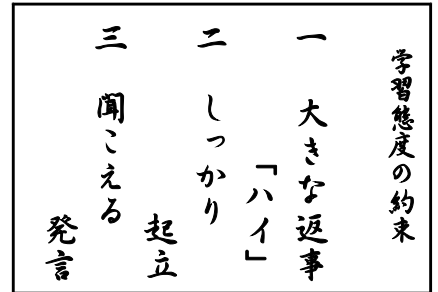 学習態度の約束
一 大きな返事
「ハイ」
二 しっかり
起立
三 聞こえる
発言